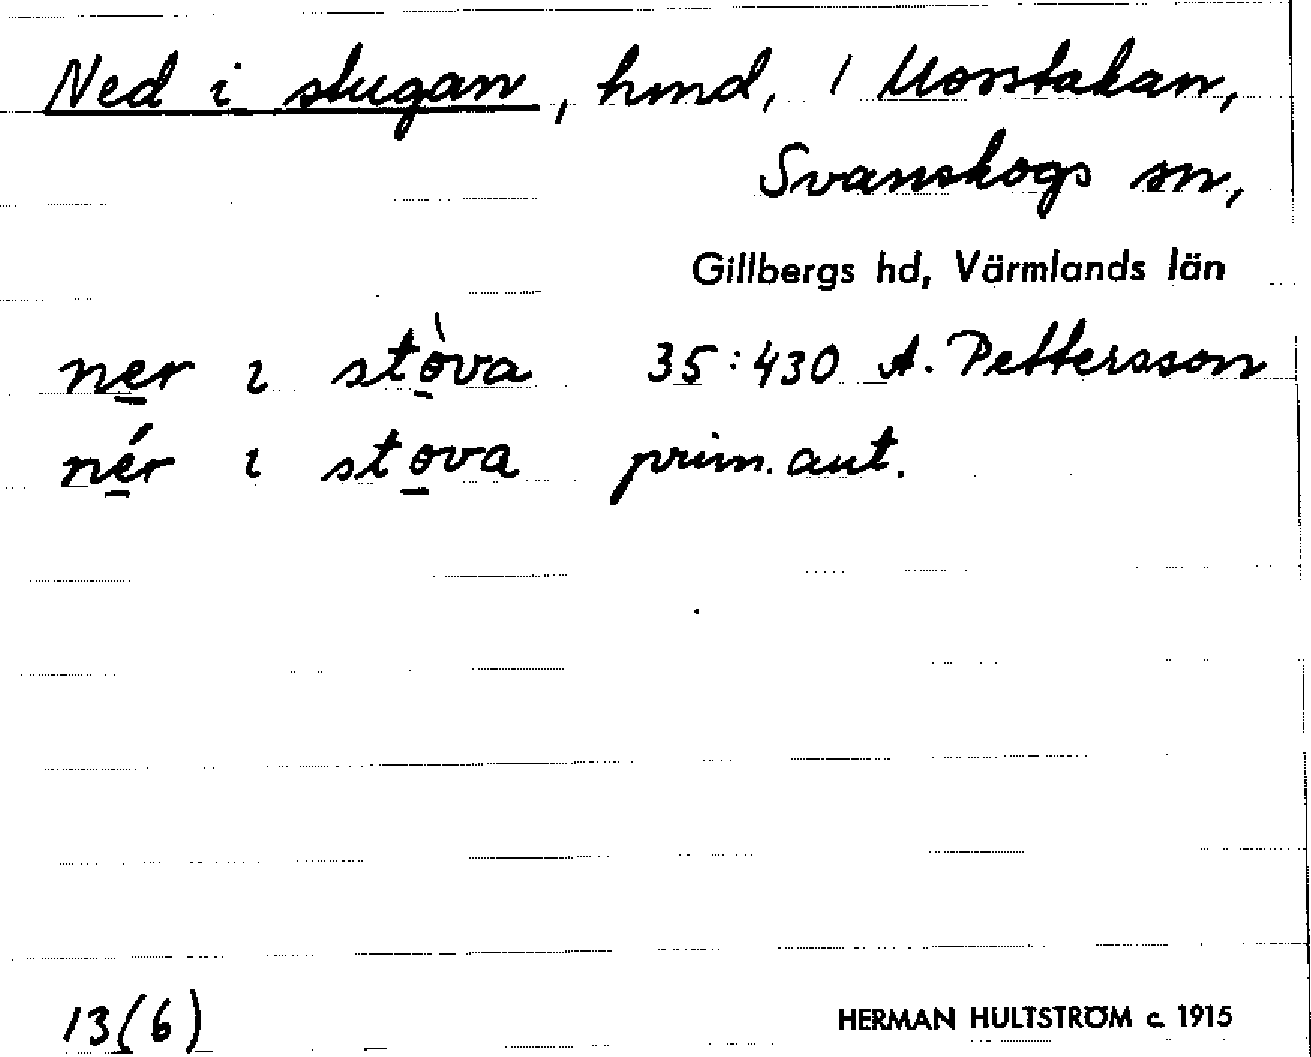 Ned i stugan, hmd, i Mosstakan,
Svanskogs sn,
Gillbergs hd, Värmlands län
ner i stòva 35:430 A. Pettersson
nér i stova prim. aut.
13(6) HERMAN HULTSTRÖM c. 1915